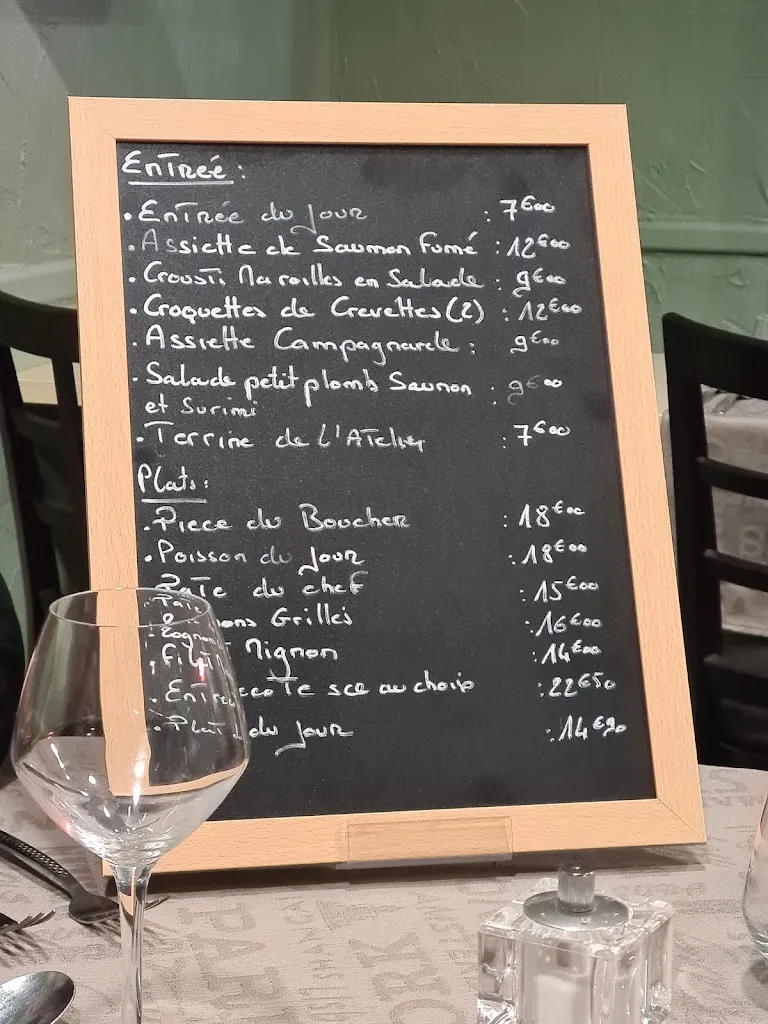 Entrée :
. Entrée du Jour : 7€00
. Assiette de Saumon Fumé : 12€00
. Crousti Maroilles en Salade : 9€00
. Croquettes de Crevettes (2) : 12€00
. Assiette Campagnarde : 9€00
. Salade petit plomb Saumon : 9€00
et Surimi
. Terrine de l'Atelier : 7€00
Plats :
. Piece du Boucher : 18€00
. Poisson du Jour : 18€00
. Pate du chef : 15€00
. Rognons Grillés : 16€00
. Filet Mignon : 14€00
. Entrecote sce au choix : 22€50
. Plat du Jour : 14€90